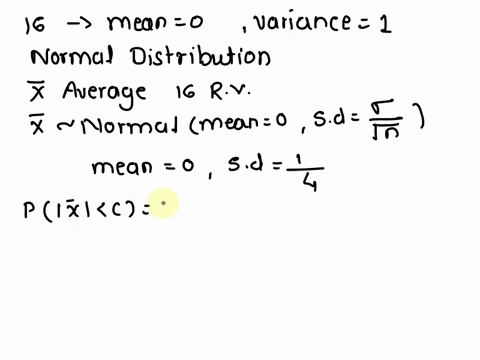 16 -> mean=0 , variance = 1
Normal Distribution
x̅ Average 16 R.V.
x̅ ~ Normal (mean=0 , s.d = σ/√n )
mean = 0 , s.d = 1/4
P(|x̅|<c) =